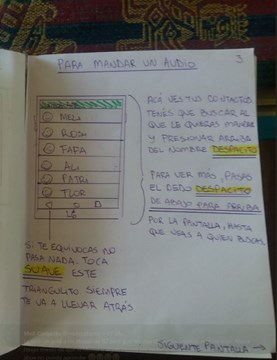 3
PARA MANDAR UN AUDIO
MELI
ROCIO
FARA
ALI
PATRI
FLOR
ACÁ VES TUS CONTACTOS.
TENÉS QUE BUSCAR AL
QUE LE QUIERAS MANDAR
Y PRESIONAR ARRIBA
DEL NOMBRE DESPACITO
PARA VER MÁS, PASÁS
EL DEDO DESPACITO
DE ABAJO PARA ARRIBA
POR LA PANTALLA, HASTA
QUE VEAS A QUIEN BUSCÁS
SI TE EQUIVOCAS NO
PASA NADA. TOCÁ
SUAVE ESTE
TRIANGULITO SIEMPRE
TE VA A LLEVAR ATRÁS
SIGUIENTE PANTALLA →